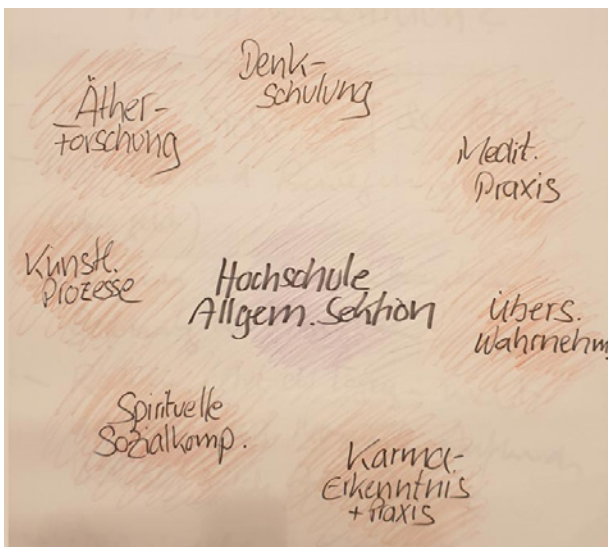 Denk-
schulung
Äther-
forschung
Medit.
Praxis
Künstl.
Prozesse
Hochschule
Allgem. Sektion
Übers.
Wahrnehm
Spirituelle
Sozialkomp.
Karma-
Erkenntnis
+ Praxis